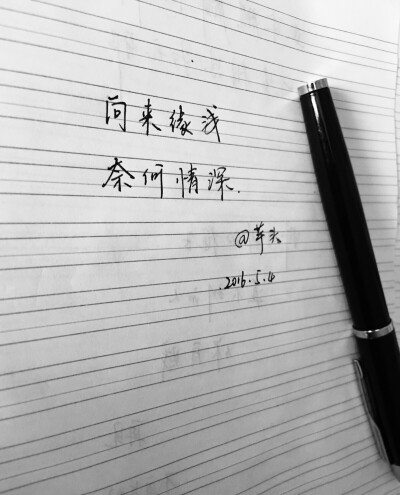 向来缘浅
奈何情深.
@芋头
2016.5.4